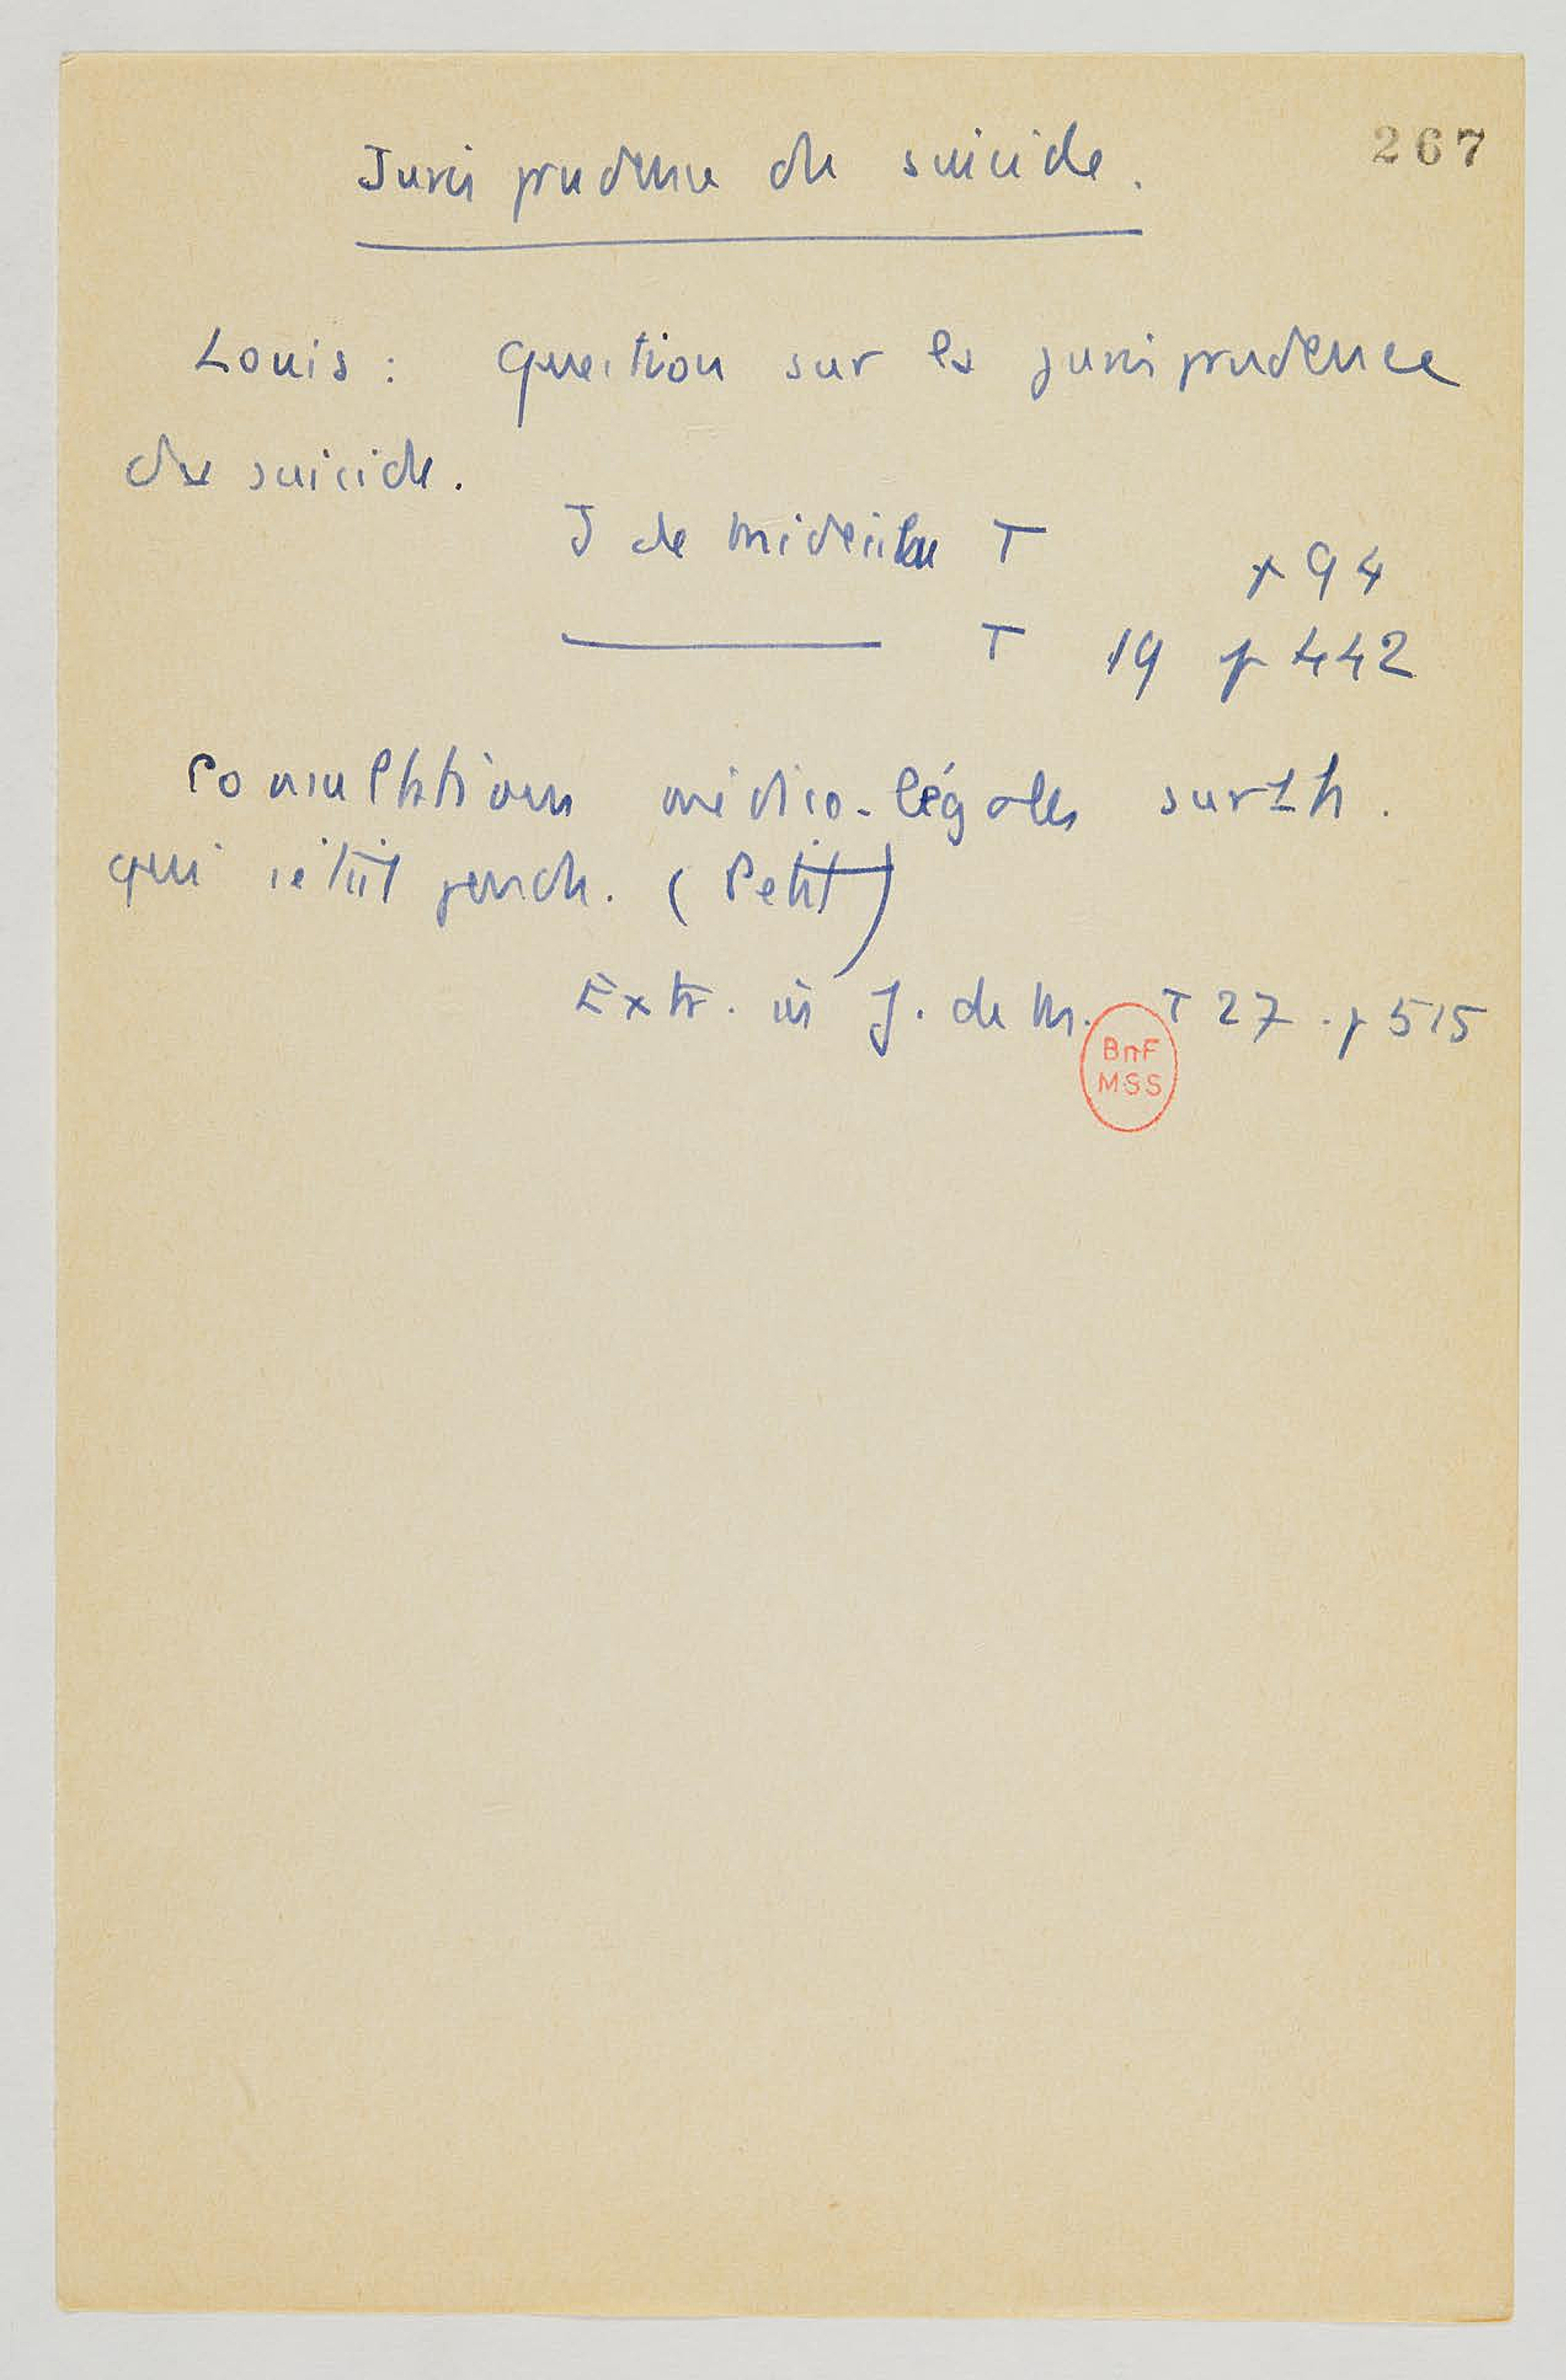 267
Jurisprudence du suicide.
Louis : question sur la jurisprudence
du suicide.
J de médecine T p 94
T 19 p 442
Consultations médico-légales sur 1 h.
qui s'était pendu. (Petit)
Extr. in J. de M. T 27. p 515
BnF
MSS